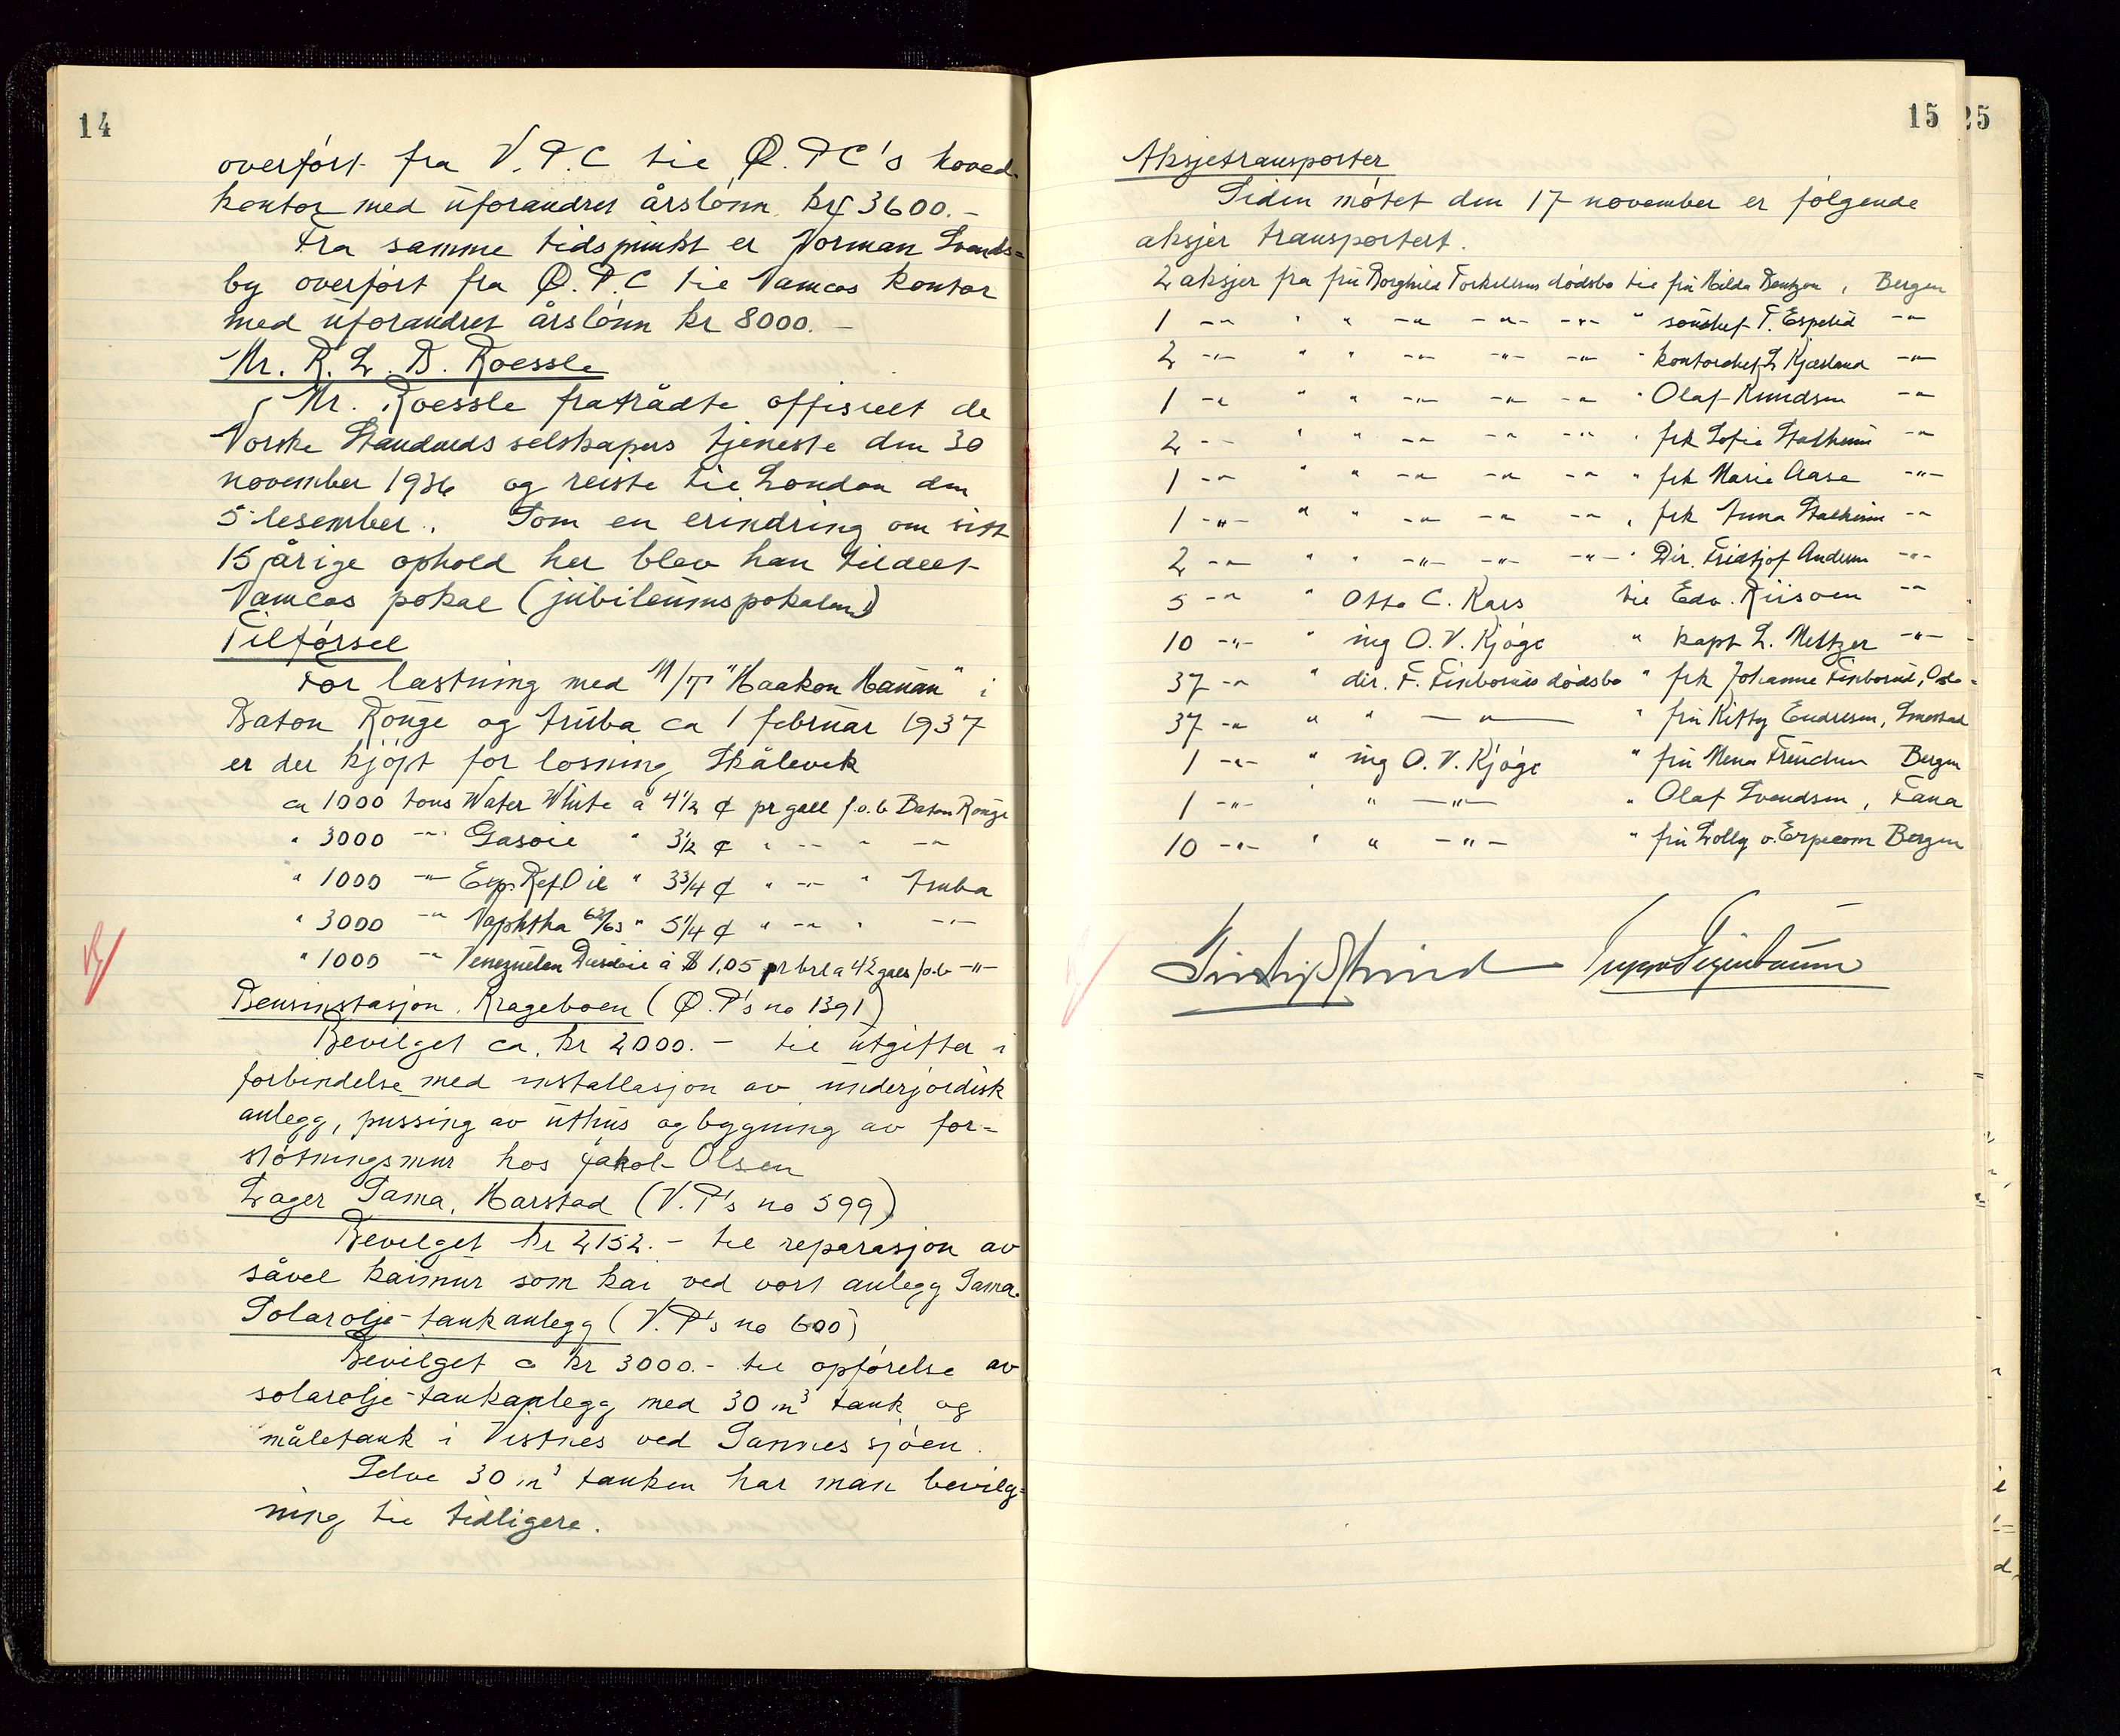 14
overført fra V.P.C til Ø.P.C's hoved-
kontor med uforandret årslønn kr 3600.-
Fra samme tidspunkt er Norman Svends=
by overført fra Ø.P.C til Vamcos kontor
med uforandret årslønn kr 8000.-
Mr. R. L. B. Roessle
Mr. Roessle fratrådte offisielt de
Norske Standardselskapers tjeneste den 30
november 1936 og reiste til London den
5 desember. Som en erindring om sitt
15 årige ophold her blev han tildelt
Vamcos pokal (jubileumspokalen)
Tilførsel
For lastning med M/T "Haakon Hauan" i
Baton Rouge og Aruba ca 1 februar 1937
er der kjøpt for losning Skålevik
ca 1000 tons Water White à 4 1/2 ¢ pr gall f.o.b Baton Rouge
" 3000 -"- Gasoil " 3 1/2 ¢ " -"- " -"-
" 1000 -"- Exp. Ref. Oil " 3 3/4 ¢ " -"- " Aruba
" 3000 -"- Naphtha 62/63 " 5 1/4 ¢ " -"- " -"-
" 1000 -"- Venezuelan Dieseloil à $ 1,05 pr brl a 42 galls f.o.b -"-
Bensinstasjon, Krageboen (Ø.P's no 1391)
Bevilget ca. kr 2000.- til utgifter i
forbindelse med installasjon av underjordisk
anlegg, pussing av uthus og bygning av for=
støtningsmur hos Jakob Olsen
Lager Sama, Harstad (V.P's no 599)
Bevilget kr 2152.- til reparasjon av
såvel kaimur som kai ved vort anlegg Sama.
Solarolje-tankanlegg (V.P's no 600)
Bevilget c kr 3000.- til opførelse av
solarolje-tankanlegg med 30 m³ tank og
måletank i Vistnes ved Sannessjøen.
Selve 30 m³ tanken har man bevilg=
ning til tidligere.
15 25
Aksjetransporter
Siden møtet den 17 november er følgende
aksjer transportert.
2 aksjer fra fru Borghild Torkelsens dødsbo til fru Hilda Bentzen, Bergen
1 -"- " " -"- -"- -"- " T. Espelid -"-
2 -"- " " -"- -"- -"- " kontorchef L Kjærland -"-
1 -"- " " -"- -"- -"- " Olaf Knudsen -"-
2 -"- " " -"- -"- -"- " frk Sofie Stalheim -"-
1 -"- " " -"- -"- -"- " frk Marie Aase -"-
1 -"- " " -"- -"- -"- " frk Anna Stalheim -"-
2 -"- " " -"- -"- -"- " Dir. Fridtjof Andersen -"-
5 -"- " Otto C. Kars til Edv. Riisøen -"-
10 -"- " ing O. V. Kjøge " kapt L. Meltzer -"-
37 -"- " dir. F. Finboruds dødsbo " frk Johanne Finborud, Oslo
37 -"- " " -"- " fru Kitty Endresen, Smestad
1 -"- " ing O. V. Kjøge " fru Mena Bergen
1 -"- " " -"- " Olaf Svendsen, Fana
10 -"- " " -"- " fru Lolly v. Erpecom Bergen